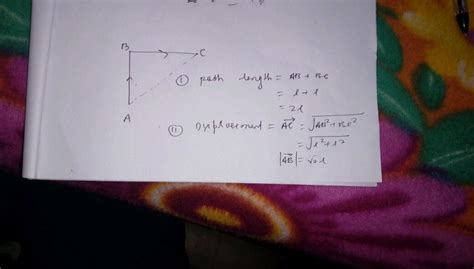 B C
A
(i) path length = AB + BC
= l + l
= 2l
(ii) Displacement = AC = √AB² + BC²
= √l² + l²
|AB| = √2 l